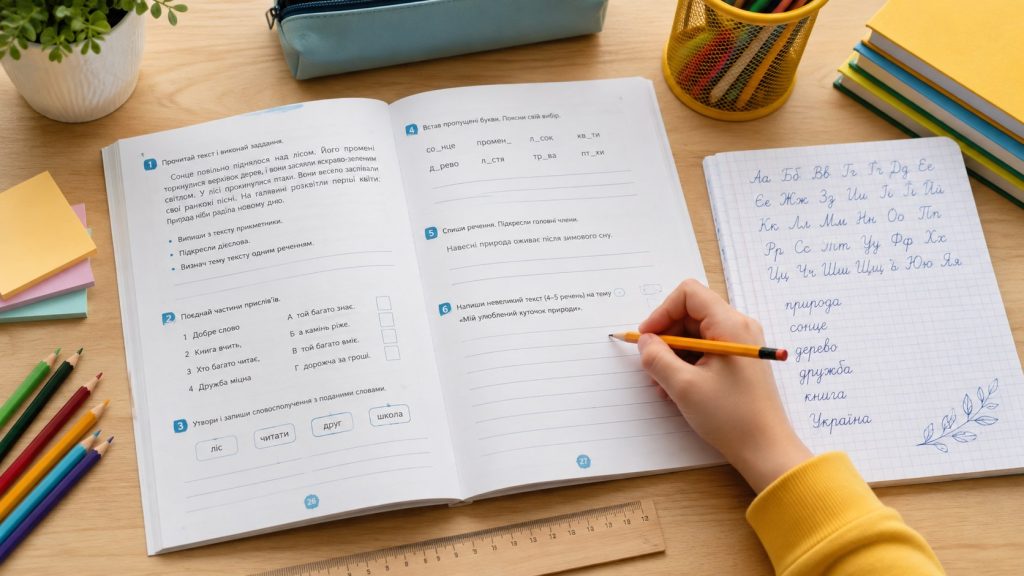 1 Прочитай текст і виконай завдання.
Сонце повільно піднялося над лісом. Його промені
торкнулися верхівок дерев, і вони засяяли яскраво-зеленим
світлом. У лісі прокинулися птахи. Вони весело заспівали
свої ранкові пісні. На галявині розквітли перші квіти.
Природа ніби раділа новому дню.
• Випиши з тексту прикметники.
• Підкресли дієслова.
• Визнач тему тексту одним реченням.
2 Поєднай частини прислів'їв.
1 Добре слово А той багато знає.
2 Книга вчить, Б а камінь ріже.
3 Хто багато читає, В той багато вміє.
4 Дружба міцна Г дорожча за гроші.
3 Утвори і запиши словосполучення з поданими словами.
ліс читати друг школа
26
4 Встав пропущені букви. Поясни свій вибір.
со_нце промен_ л_сок кв_ти
д_рево л_стя тр_ва пт_хи
5 Спиши речення. Підкресли головні члени.
Навесні природа оживає після зимового сну.
6 Напиши невеликий текст (4–5 речень) на тему
«Мій улюблений куточок природи».
27
Аа Бб Вв Гг Ґґ Дд Ее
Єє Жж Зз Ии Іі Її Йй
Кк Лл Мм Нн Оо Пп
Рр Сс Тт Уу Фф Хх
Цц Чч Шш Щщ ь Юю Яя
природа
сонце
дерево
дружба
книга
Україна